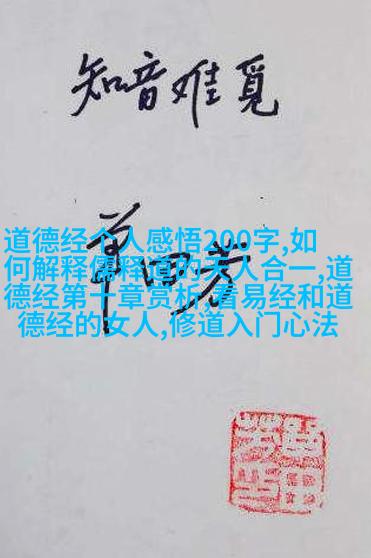 知音难觅
道德经个人感悟200字,如
何解释儒释道的天人合一,道
德经第十章赏析,看易经和道
德经的女人,修道入门心法
单田芳